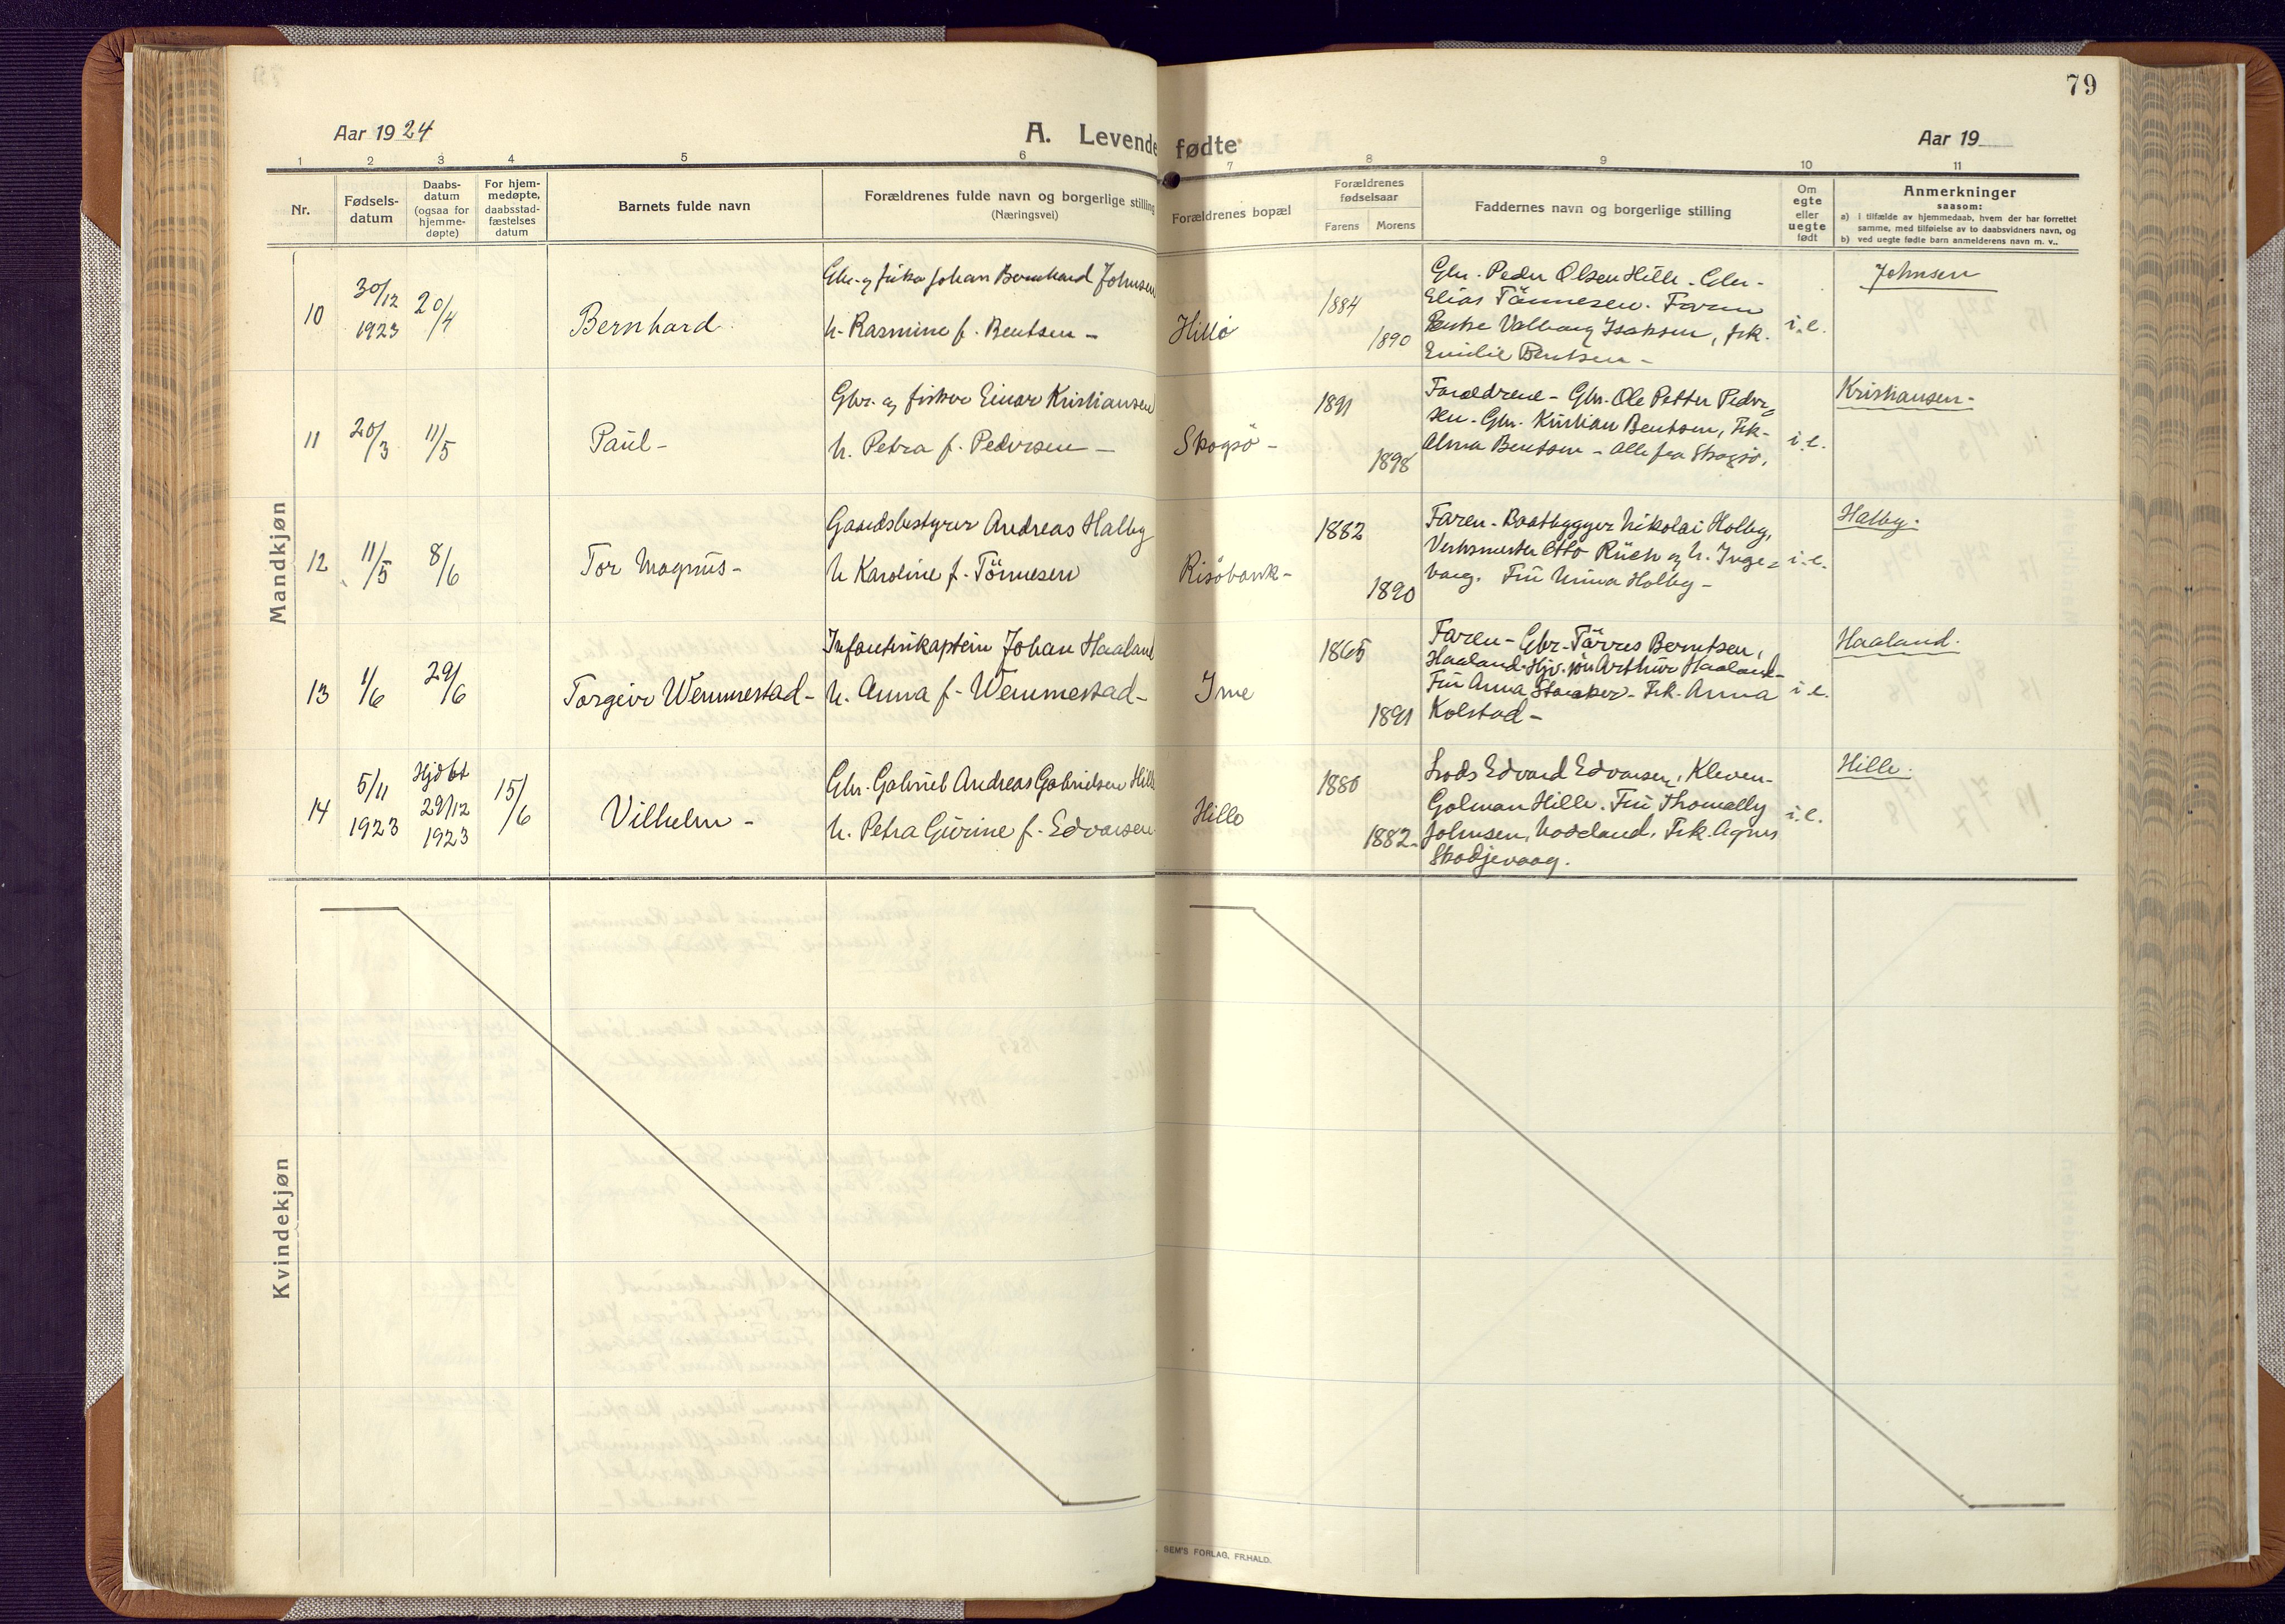 79
Aar 1924
A. Levende fødte
Aar 19
1 2 3 4 5 6 7 8 9 10 11
Nr.
Fødsels-
datum
Daabs-
datum
(ogsaa for
hjemme-
døpte)
For hjem-
medøpte,
daabsstad-
fæstelses
datum
Barnets fulde navn
Forældrenes fulde navn og borgerlige stilling
(Næringsvei)
Forældrenes bopæl
Forældrenes
fødselsaar
Farens Morens
Faddernes navn og borgerlige stilling
Om
egte
eller
uegte
født
Anmerkninger
saasom:
a) i tilfælde av hjemmedaab, hvem der har forrettet
samme, med tilføielse av to daabsvidners navn, og
b) ved uegte fødte barn anmelderens navn m. v..
Mandkjøn
10
30/12
1923
20/4
Bernhard
Gbr. og fisker Johan Bernhard Johnsen
h. Rasmine f. Bentsen -
Hillö
1884
1890
Gbr. Peder Olsen Hille - Gbr.
Elias Tönnesen. Faren
Valborg Isaksen, frk.
Emilie Bentsen -
i.e.
Johnsen
11
20/3
11/5
Paul -
Gbr. og fisker Einar Kristiansen
h. Petra f. Pedersen -
Skogsö -
1891
1898
Forældrene - Gbr. Ole Petter Peder=
sen - Gbr. Kristian Bentsen, Frk.
Alma Bentsen - Alle fra Skogsö.
i.e.
Kristiansen -
12
11/5
8/6
Tor Magnus -
Gaardsbestyrer Andreas Halby
h Karoline f. Tönnesen
Risöbank -
1882
1890
Faren - Baatbygger Nikolai Holby,
Verksmester Otto Rüch og h. Inge=
borg. Fru Minna Holby -
i.e.
Halby.
13
1/6
29/6
Torgeir Wemmestad -
Infanterikaptein Johan Haaland
h. Anna f. Wemmestad -
Ime
1865
1891
Faren - Gbr. Tärres Berntsen,
Haaland. Hjv. sön Arthur Haaland -
Fru Anna Stausker - Frk. Anna
Kolstad -
i.e.
Haaland.
14
5/11
1923
Hjdbt
29/12
1923
15/6
Vilhelm -
Gbr. Gabriel Andreas Gabrielsen Hille
h. Petra Gurine f. Edvarsen
Hillö
1880
1882 -
Lods Edvard Edvarsen, Kleven -
Golman Hille. Fru Thomally
Johnsen, Nodeland, Frk. Agnes
Skodjevaag.
i.e.
Hille.
Kvindekjøn
SEM'S FORLAG, FR.HALD.